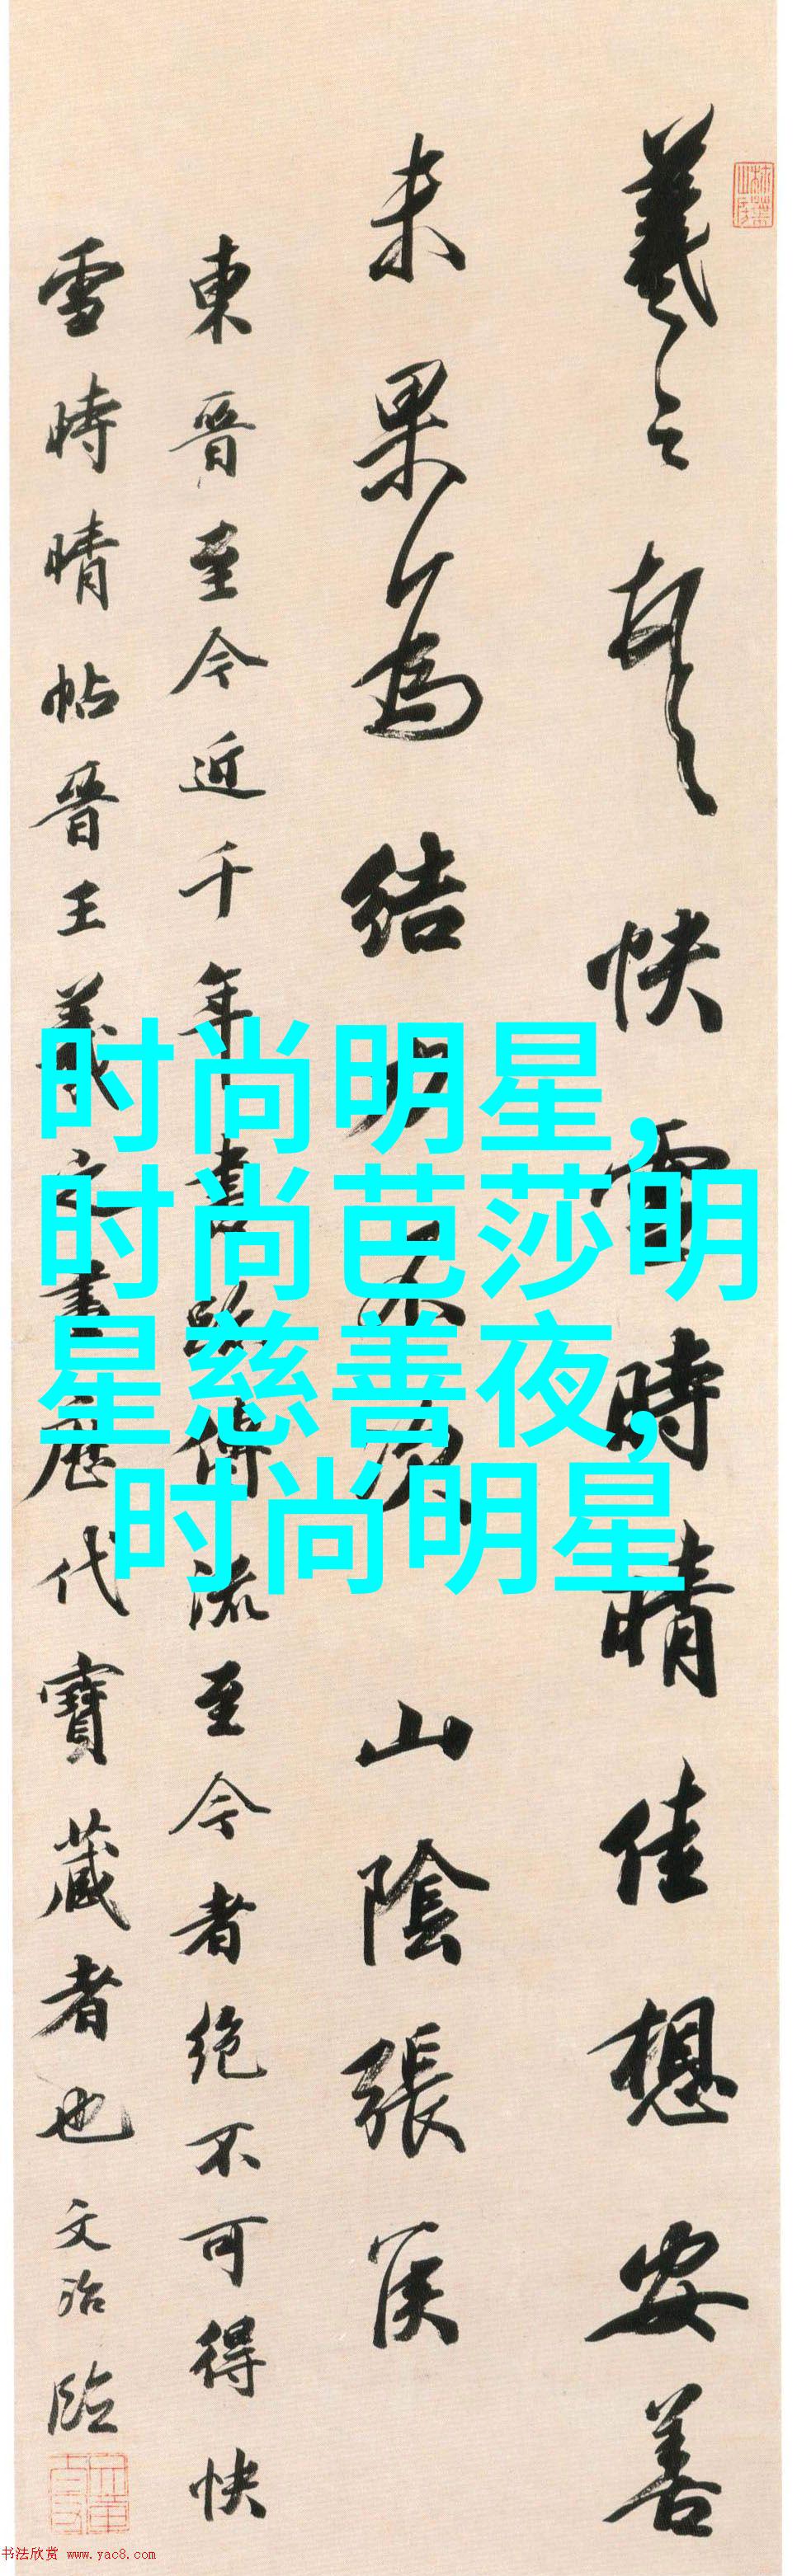 羲之頓首快雪時晴佳想安善
未果為結力不次山陰張侯
東晉至今近千年書跡傳流至今者絶不可得快
雪時晴帖晉王羲之書歷代寶藏者也文治臨
時尚明星,
时尚芭莎明
星慈善夜,
时尚明星
书法欣赏 www.yac8.com